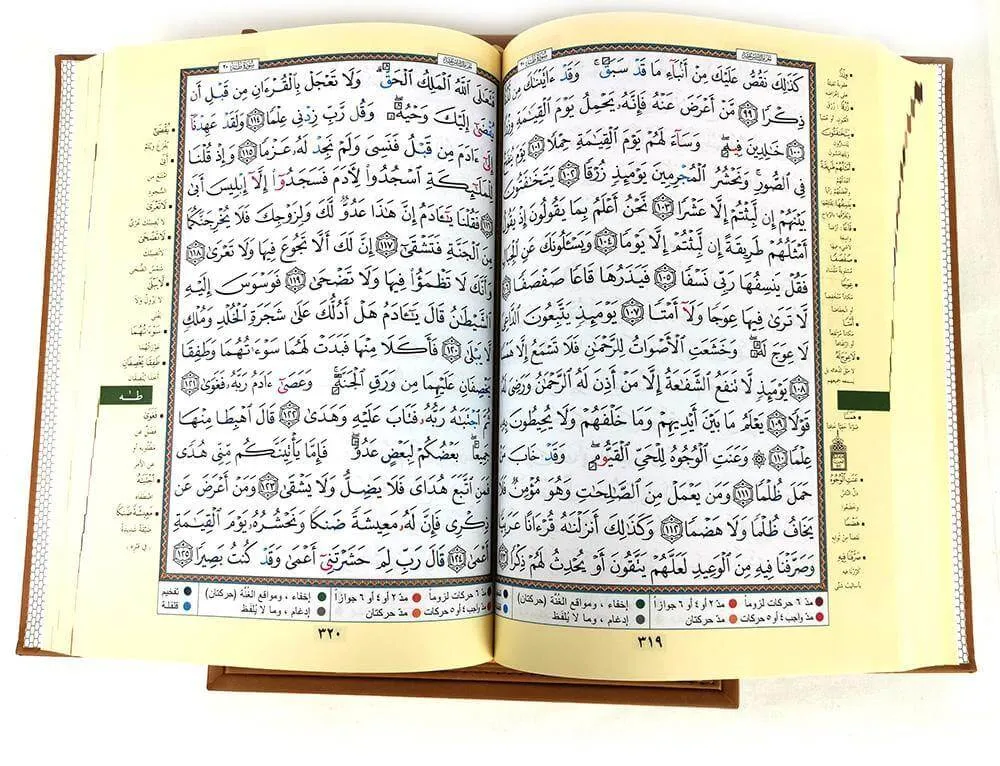 سورة طه ٢٠
كَذَٰلِكَ نَقُصُّ عَلَيْكَ مِنْ أَنۢبَآءِ مَا قَدْ سَبَقَ ۚ وَقَدْ ءَاتَيْنَٰكَ مِن
ذِكْرًا ٩٩ مَّنْ أَعْرَضَ عَنْهُ فَإِنَّهُۥ يَحْمِلُ يَوْمَ ٱلْقِيَٰمَةِ
١٠٠ خَٰلِدِينَ فِيهِ ۖ وَسَآءَ لَهُمْ يَوْمَ ٱلْقِيَٰمَةِ حِمْلًا ١٠١ يَوْمَ
فِى ٱلصُّورِ ۚ وَنَحْشُرُ ٱلْمُجْرِمِينَ يَوْمَئِذٍ زُرْقًا ١٠٢ يَتَخَٰفَتُونَ
بَيْنَهُمْ إِن لَّبِثْتُمْ إِلَّا عَشْرًا ١٠٣ نَّحْنُ أَعْلَمُ بِمَا يَقُولُونَ إِذْ
أَمْثَلُهُمْ طَرِيقَةً إِن لَّبِثْتُمْ إِلَّا يَوْمًا ١٠٤ وَيَسْـَٔلُونَكَ عَنِ
فَقُلْ يَنسِفُهَا رَبِّى نَسْفًا ١٠٥ فَيَذَرُهَا قَاعًا صَفْصَفًا
لَّا تَرَىٰ فِيهَا عِوَجًا وَلَآ أَمْتًا ١٠٧ يَوْمَئِذٍ يَتَّبِعُونَ ٱلدَّاعِىَ
لَا عِوَجَ لَهُۥ ۖ وَخَشَعَتِ ٱلْأَصْوَاتُ لِلرَّحْمَٰنِ فَلَا تَسْمَعُ إِلَّا
١٠٨ يَوْمَئِذٍ لَّا تَنفَعُ ٱلشَّفَٰعَةُ إِلَّا مَنْ أَذِنَ لَهُ ٱلرَّحْمَٰنُ وَرَضِىَ
قَوْلًا ١٠٩ يَعْلَمُ مَا بَيْنَ أَيْدِيهِمْ وَمَا خَلْفَهُمْ وَلَا يُحِيطُونَ
عِلْمًا ١١٠ ۞ وَعَنَتِ ٱلْوُجُوهُ لِلْحَىِّ ٱلْقَيُّومِ ۖ وَقَدْ خَابَ مَنْ
حَمَلَ ظُلْمًا ١١١ وَمَن يَعْمَلْ مِنَ ٱلصَّٰلِحَٰتِ وَهُوَ مُؤْمِنٌ فَلَا
يَخَافُ ظُلْمًا وَلَا هَضْمًا ١١٢ وَكَذَٰلِكَ أَنزَلْنَٰهُ قُرْءَانًا عَرَبِيًّا
وَصَرَّفْنَا فِيهِ مِنَ ٱلْوَعِيدِ لَعَلَّهُمْ يَتَّقُونَ أَوْ يُحْدِثُ لَهُمْ ذِكْرًا
مدّ ٦ حركات لزوماً مدّ ٢ أو ٤ أو ٦ جوازاً إخفاء ، ومواقع الغُنَّة (حركتان)
مدّ واجب ٤ أو ٥ حركات مدّ حركتان إدغام ، وما لا يُلفَظ
٣١٩
سورة طه ٢٠
فَتَعَٰلَى ٱللَّهُ ٱلْمَلِكُ ٱلْحَقُّ ۗ وَلَا تَعْجَلْ بِٱلْقُرْءَانِ مِن قَبْلِ أَن
يُقْضَىٰٓ إِلَيْكَ وَحْيُهُۥ ۖ وَقُل رَّبِّ زِدْنِى عِلْمًا ١١٤ وَلَقَدْ عَهِدْنَآ
إِلَىٰٓ ءَادَمَ مِن قَبْلُ فَنَسِىَ وَلَمْ نَجِدْ لَهُۥ عَزْمًا ١١٥ وَإِذْ قُلْنَا
لِلْمَلَٰٓئِكَةِ ٱسْجُدُوا۟ لِـَٔادَمَ فَسَجَدُوٓا۟ إِلَّآ إِبْلِيسَ أَبَىٰ
١١٦ فَقُلْنَا يَٰٓـَٔادَمُ إِنَّ هَٰذَا عَدُوٌّ لَّكَ وَلِزَوْجِكَ فَلَا يُخْرِجَنَّكُمَا
مِنَ ٱلْجَنَّةِ فَتَشْقَىٰٓ ١١٧ إِنَّ لَكَ أَلَّا تَجُوعَ فِيهَا وَلَا تَعْرَىٰ ١١٨
وَأَنَّكَ لَا تَظْمَؤُا۟ فِيهَا وَلَا تَضْحَىٰ ١١٩ فَوَسْوَسَ إِلَيْهِ
ٱلشَّيْطَٰنُ قَالَ يَٰٓـَٔادَمُ هَلْ أَدُلُّكَ عَلَىٰ شَجَرَةِ ٱلْخُلْدِ وَمُلْكٍ
لَّا يَبْلَىٰ ١٢٠ فَأَكَلَا مِنْهَا فَبَدَتْ لَهُمَا سَوْءَٰتُهُمَا وَطَفِقَا
يَخْصِفَانِ عَلَيْهِمَا مِن وَرَقِ ٱلْجَنَّةِ ۚ وَعَصَىٰٓ ءَادَمُ رَبَّهُۥ فَغَوَىٰ ١٢١
ثُمَّ ٱجْتَبَٰهُ رَبُّهُۥ فَتَابَ عَلَيْهِ وَهَدَىٰ ١٢٢ قَالَ ٱهْبِطَا مِنْهَا
جَمِيعًۢا ۖ بَعْضُكُمْ لِبَعْضٍ عَدُوٌّ ۖ فَإِمَّا يَأْتِيَنَّكُم مِّنِّى هُدًى
فَمَنِ ٱتَّبَعَ هُدَاىَ فَلَا يَضِلُّ وَلَا يَشْقَىٰ ١٢٣ وَمَنْ أَعْرَضَ عَن
ذِكْرِى فَإِنَّ لَهُۥ مَعِيشَةً ضَنكًا وَنَحْشُرُهُۥ يَوْمَ ٱلْقِيَٰمَةِ
أَعْمَىٰ ١٢٤ قَالَ رَبِّ لِمَ حَشَرْتَنِىٓ أَعْمَىٰ وَقَدْ كُنتُ بَصِيرًا ١٢٥
مدّ ٦ حركات لزوماً مدّ ٢ أو ٤ أو ٦ جوازاً إخفاء ، ومواقع الغُنَّة (حركتان) تفخيم
مدّ واجب ٤ أو ٥ حركات مدّ حركتان إدغام ، وما لا يُلفَظ قلقلة
٣٢٠
طه